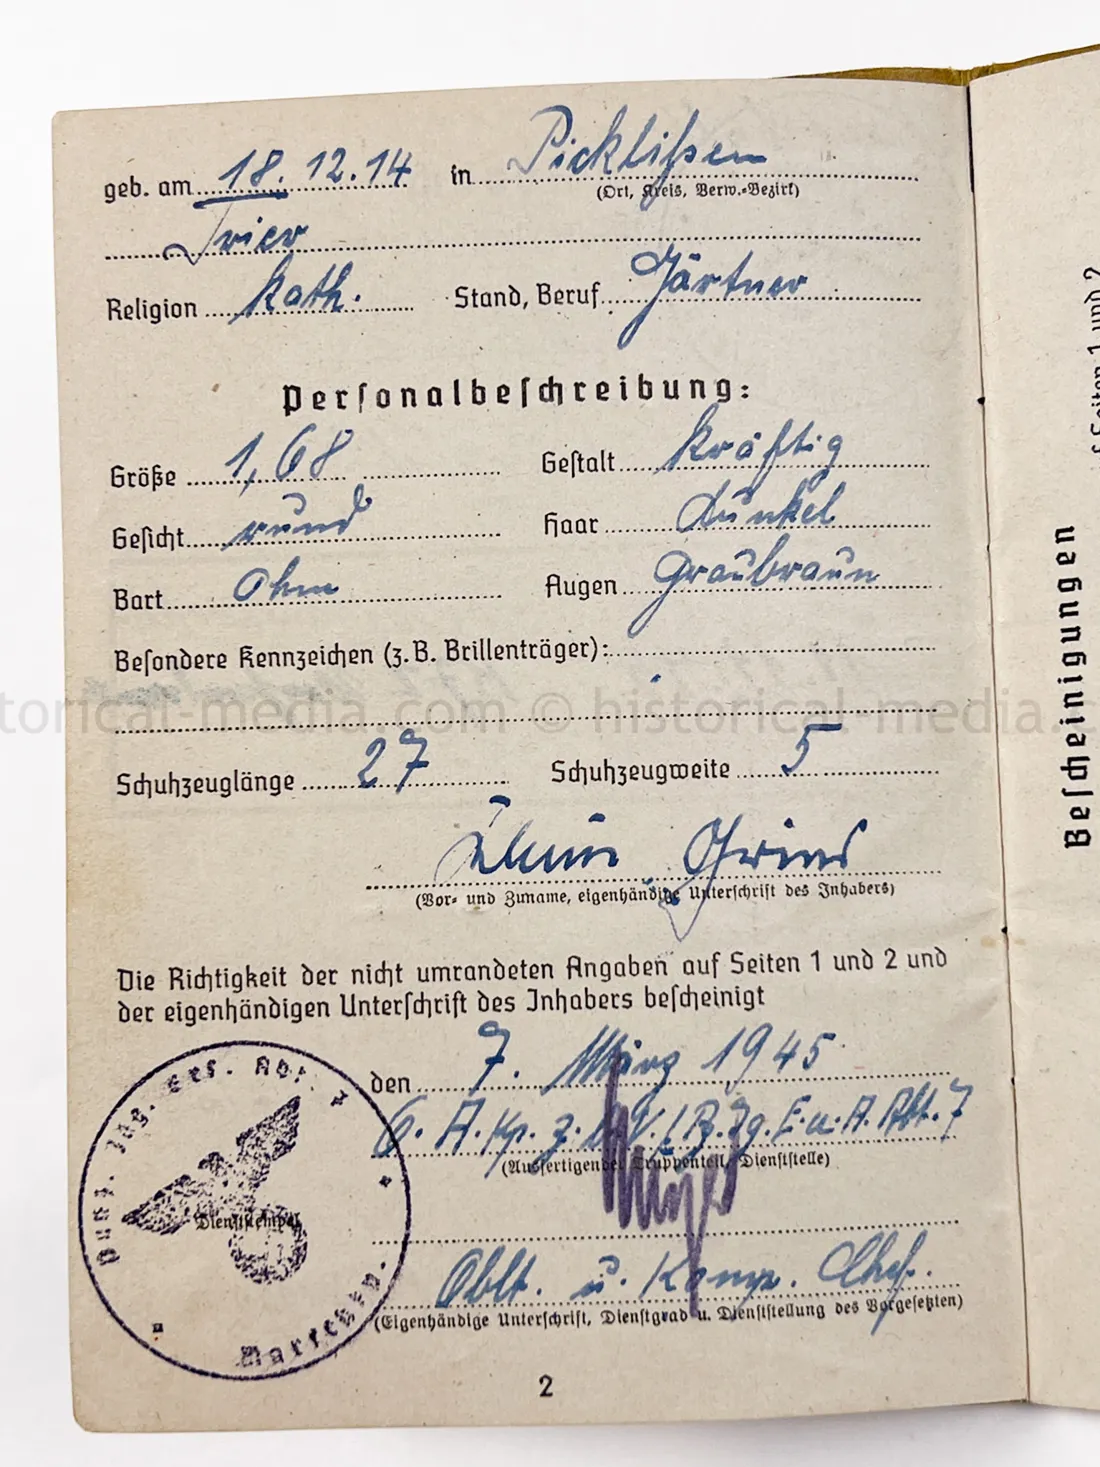 geb. am 18. 12. 14 in Pickließen
(Ort, Kreis, Verw.-Bezirk)
Trier
Religion kath. Stand, Beruf Gärtner
Personalbeschreibung:
Größe 1,68 Gestalt kräftig
Gesicht rund Haar dunkel
Bart Ohne Augen Graubraun
Besondere Kennzeichen (z. B. Brillenträger):
torical-media.com © historical-media.c
Schuhzeuglänge 27 Schuhzeugweite 5
(Vor- und Zuname, eigenhändige Unterschrift des Inhabers)
Die Richtigkeit der nicht umrandeten Angaben auf Seiten 1 und 2 und
der eigenhändigen Unterschrift des Inhabers bescheinigt
den 7. März 1945
6. A. Kp. z. / Pz. Jg. E. u. A. Abt. 7
(Ausfertigender Truppenteil, Dienststelle)
Oblt. u. Komp. Chef.
(Eigenhändige Unterschrift, Dienstgrad u. Dienststellung des Vorgesetzten)
Dienststempel
2
Bescheinigungen
f Seiten 1 und 2